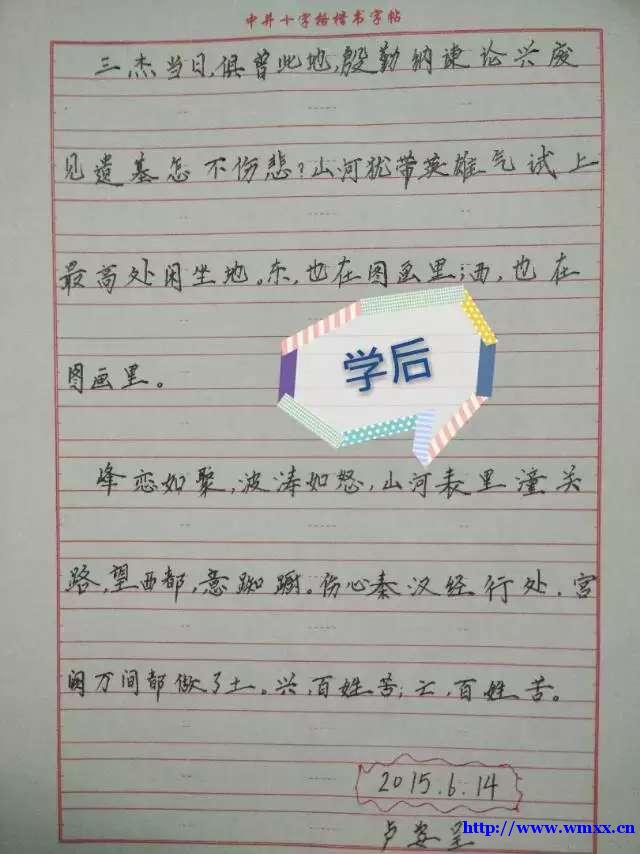 中井十字格楷书字帖
三杰当日,俱曾此地,殷勤纳谏论兴废
见遗基怎不伤悲?山河犹带英雄气试上
最高处闲坐地。东,也在图画里;西,也在
图画里。
学后
峰恋如聚,波涛如怒,山河表里潼关
路,望西都,意踟蹰。伤心秦汉经行处,宫
阙万间都做了土。兴,百姓苦;亡,百姓苦。
2015.6.14
http://www.wmxx.cn